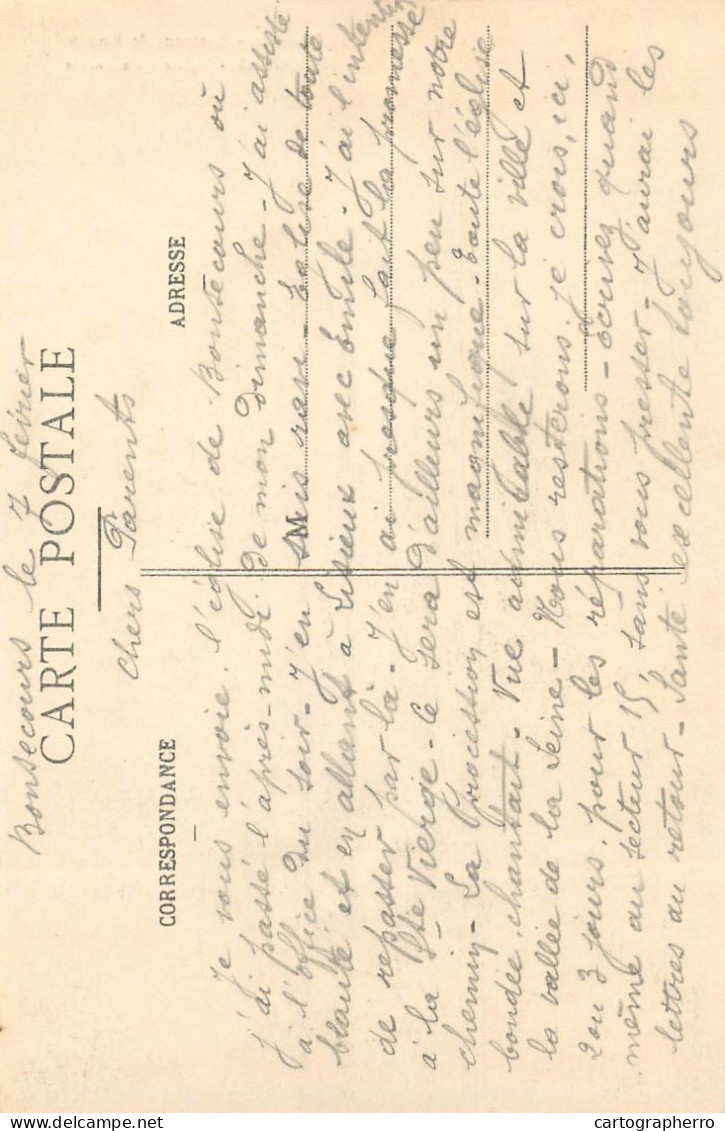 Bonsecours le 7 février
CARTE POSTALE
Chers Parents
CORRESPONDANCE
ADRESSE
Je vous envoie l'église de Bonsecours où
j'ai passé l'après-midi de mon dimanche - J'ai assisté
à l'office du soir - J'en suis ravi - Eglise de toute
beauté et en allant à Lisieux avec Emile - J'ai l'intention
de repasser par là - J'en ai presque fait la promesse
à la Ste Vierge - Ce sera d'ailleurs un peu sur notre
chemin - La Procession est magnifique - toute l'église
bondée, chantait. Vue admirable sur la ville et
la vallée de la Seine - Nous resterons, je crois, ici,
2 ou 3 jours, pour les réparations - écrivez quand
même au secteur 15, sans vous presser - J'aurai les
lettres au retour - Santé excellente toujours
M
cartographerro